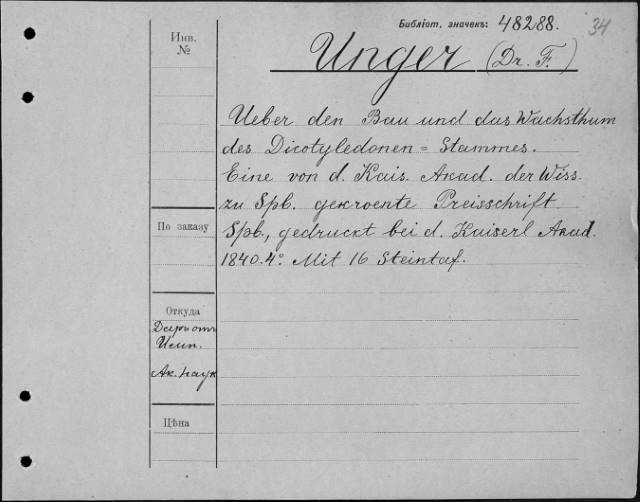 Библіот. значекъ: 48288. 34
Инв.
№
Unger (Dr. F.)
Ueber den Bau und das Wachsthum
des Dicotyledonen = Stammes.
Eine von d. Kais. Akad. der Wiss.
zu Spb. gekroente Preisschrift
По заказу
Spb., gedruckt bei d. Kaiserl Akad.
1840. 4° Mit 16 Steintaf.
Откуда
Даръ отъ
Имп.
Ак. наук
Цѣна